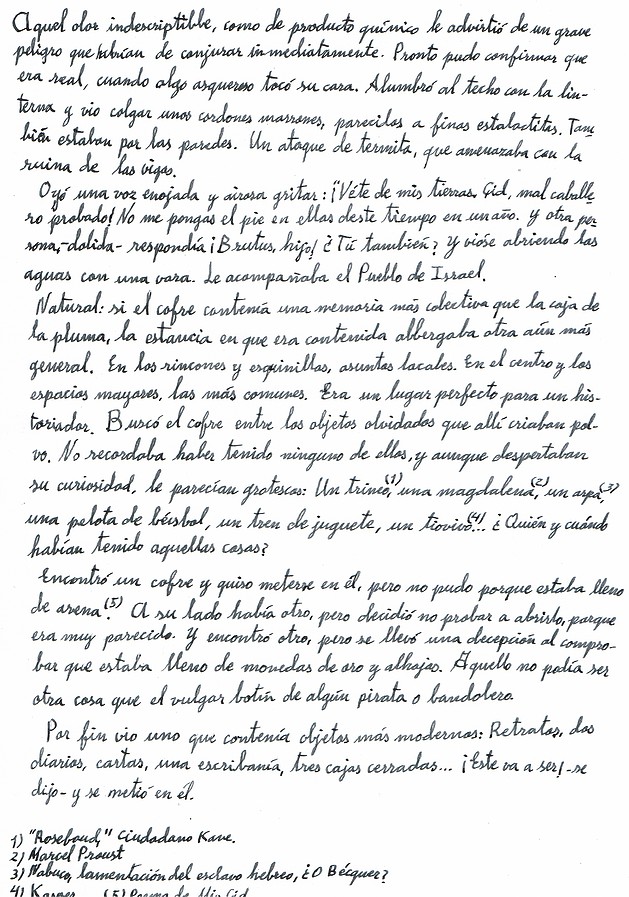 Aquel olor indescriptible, como de producto químico le advirtió de un grave
peligro que habían de conjurar inmediatamente. Pronto pudo confirmar que
era real, cuando algo asqueroso tocó su cara. Alumbró al techo con la lin-
terna y vio colgar unos cordones marrones, parecidos a finas estalactitas. Tam
bién estaban por las paredes. Un ataque de termita, que amenazaba con la
ruina de las vigas.
Oyó una voz enojada y airosa gritar: ¡Véte de mis tierras, Çid, mal caballe
ro probado! No me pongas el pie en ellas deste tiempo en un año. Y otra per
sona,-dolida- respondía ¡Brutus, hijo! ¿Tú también? Y vióse abriendo las
aguas con una vara. Le acompañaba el Pueblo de Israel.
Natural: si el cofre contenía una memoria más colectiva que la caja de
la pluma, la estancia en que era contenida albergaba otra aún más
general. En los rincones y esquinillas, asuntos locales. En el centro y los
espacios mayores, las más comunes. Era un lugar perfecto para un his-
toriador. Buscó el cofre entre los objetos olvidados que allí criaban pol-
vo. No recordaba haber tenido ninguno de ellos, y aunque despertaban
su curiosidad, le parecían grotescos: Un trineo,(1) una magdalena,(2) un arpa,(3)
una pelota de béisbol, un tren de juguete, un tiovivo(4)... ¿Quién y cuándo
habían tenido aquellas cosas?
Encontró un cofre y quiso meterse en él, pero no pudo porque estaba lleno
de arena(5). A su lado había otro, pero decidió no probar a abrirlo, porque
era muy parecido. Y encontró otro, pero se llevó una decepción al compro-
bar que estaba lleno de monedas de oro y alhajas. Aquello no podía ser
otra cosa que el vulgar botín de algún pirata o bandolero.
Por fin vio uno que contenía objetos más modernos: Retratos, dos
diarios, cartas, una escribanía, tres cajas cerradas... ¡Este va a ser!-se
dijo- y se metió en él.
1) "Rosebaud," Ciudadano Kane.
2) Marcel Proust
3) Nabuco, lamentación del esclavo hebreo, ¿O Bécquer?
4) (5) Poema de Mio Cid